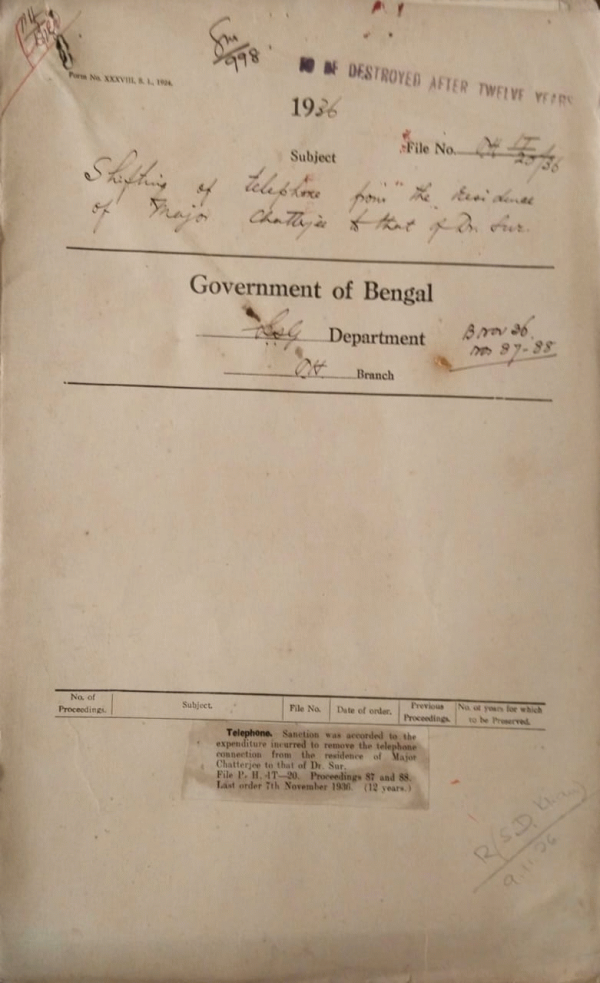 Sm
998
Form No. XXXVIII, S. I., 1934.
TO BE DESTROYED AFTER TWELVE YEARS
1936
Subject
File No. PH 1T
20/36
Shifting of telephone from the residence
of Major Chatterjee to that of Dr. Sur.
Government of Bengal
LSG Department
B Nov 36
Nos 87-88
P.H. Branch
No. of Proceedings. Subject. File No. Date of order. Previous Proceedings. No. of years for which to be Preserved.
Telephone. Sanction was accorded to the
expenditure incurred to remove the telephone
connection from the residence of Major
Chatterjee to that of Dr. Sur.
File P. H. 1T—20. Proceedings 87 and 88.
Last order 7th November 1936. (12 years.)
9.11.36